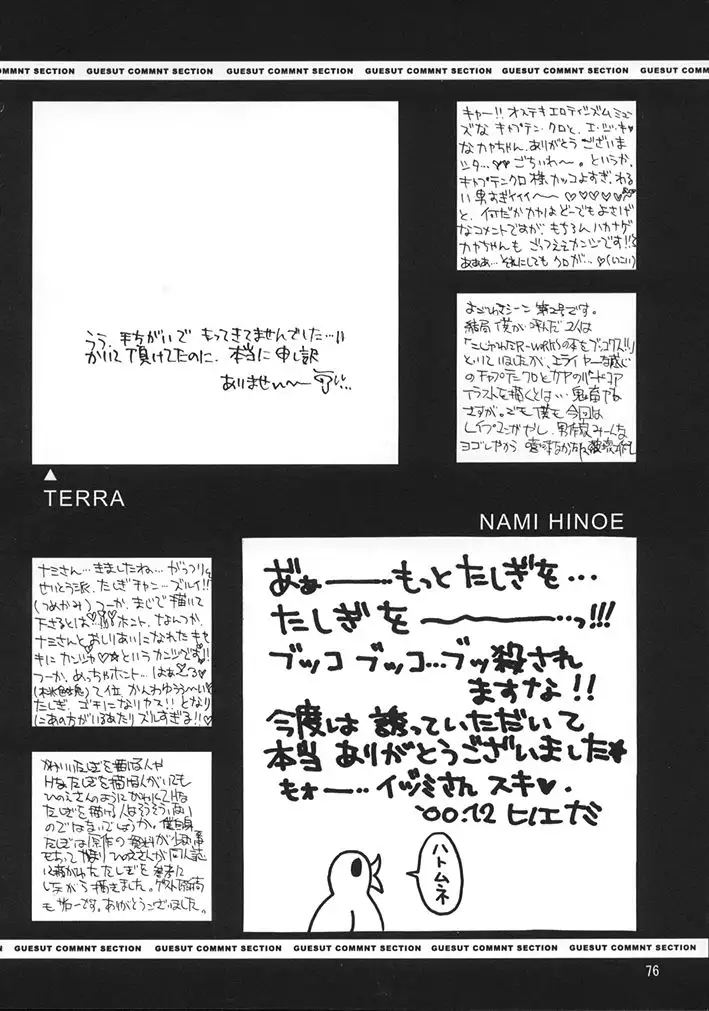 OMMNT SECTION GUESUT COMMNT SECTION GUESUT COMMNT SECTION GUESUT COMMNT SECTION GUESUT COMMNT SECTION GUESUT COMM
うう、手ちがいで もってきてませんでした…!!
かいて頂けてたのに、本当に申し訳
ありませんー
TERRA
キャー!! オステキエロティシズムミュー
ズな キャプテン・クロと、エ・ッ・キ♥
なカヤちゃん、ありがとうございま
シタ…♥♥ ごちそれ〜。というか、
キャプテンクロ様 カッコよすぎ、わる
い男すぎイイイー〜♡♡♡♡
と、何だかカヤはどーでもよさげ
なコメントですが、もちろんハカナゲ
カヤちゃんも ごっつええカンジです!!
あああ… それにしても クロが… ♡(いこい)
第2号です。
結局 僕が 呼んだ 2人は
の本をブッコワス!!
といていましたが、エライヤーな感じ
のキャプテンクロとカヤのハードコア
イラストを描くとは… 鬼畜やな
さすが。でも 僕も 今回は
男作家みーんな
ヨゴレやから
NAMI HINOE
ナミさん… きましたね… がっつり
せいとう派、たしぎチャン… ズルイ!!
(つめかみ) つーか、まじで描いて
下さるとは… ホント、なんつか、
ナミさんと おしりあいになれたキセ
キにカンシャ♥☆というカンジです!!
つーか、めっちゃホント… はぁ〜
て位 かんわゆうぅ〜い
たしぎ、ゴチになりヤス!! となり
にあの方がいるあたり ズルすぎる!!♡
かわいいたしぎを描ける人や
Hなたしぎを描ける人がいても
ひのえさんのように かわいくてHな
たしぎを描ける人はそうそういない
のではないでしょうか。僕自身
たしぎは原作の資料が
ひのえさんが同人誌
に描かれたたしぎを参考に
しながら描きました。ゲスト原稿
もサイコーです。ありがとうございました。
あぁー……もっと たしぎを…
たしぎを 〜〜〜…っ!!!
ブッコ ブッコ…ブッ殺され
ますな!!
今度は 誘っていただいて
本当 ありがとうございました★
もォー… イヅミさん スキ♥.
'00.12 ヒノエナミ
ハトムネ
N GUESUT COMMNT SECTION GUESUT COMMNT SECTION GUESUT COMMNT SECTION GUESUT COMMNT SECTION GUESUT COMMNT SECTION
76